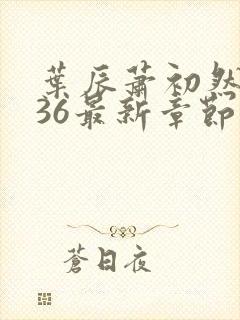 葉辰蕭初然
36最新章節
蒼日夜